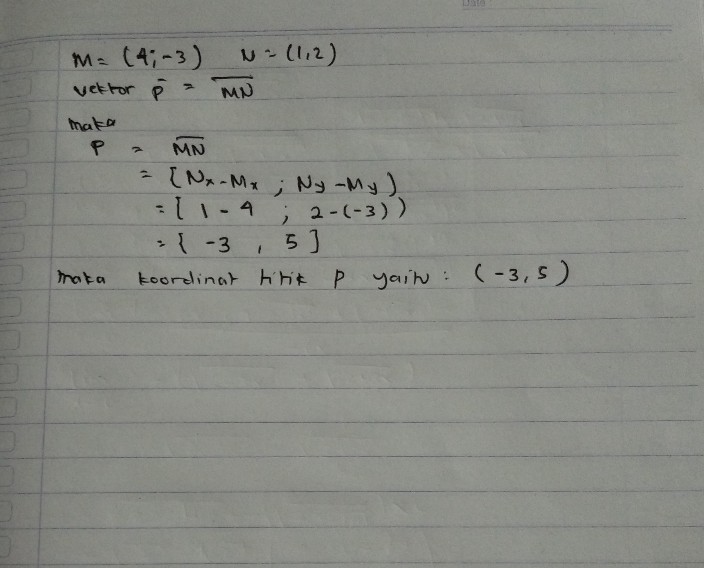 M = (4;-3) N = (1,2)
vektor p̄ = M̅N̅
maka
P = M̅N̅
= [Nx - Mx ; Ny - My)
= [ 1 - 4 ; 2-(-3))
= { -3 , 5 ]
maka koordinat titik p yaitu : (-3,5)